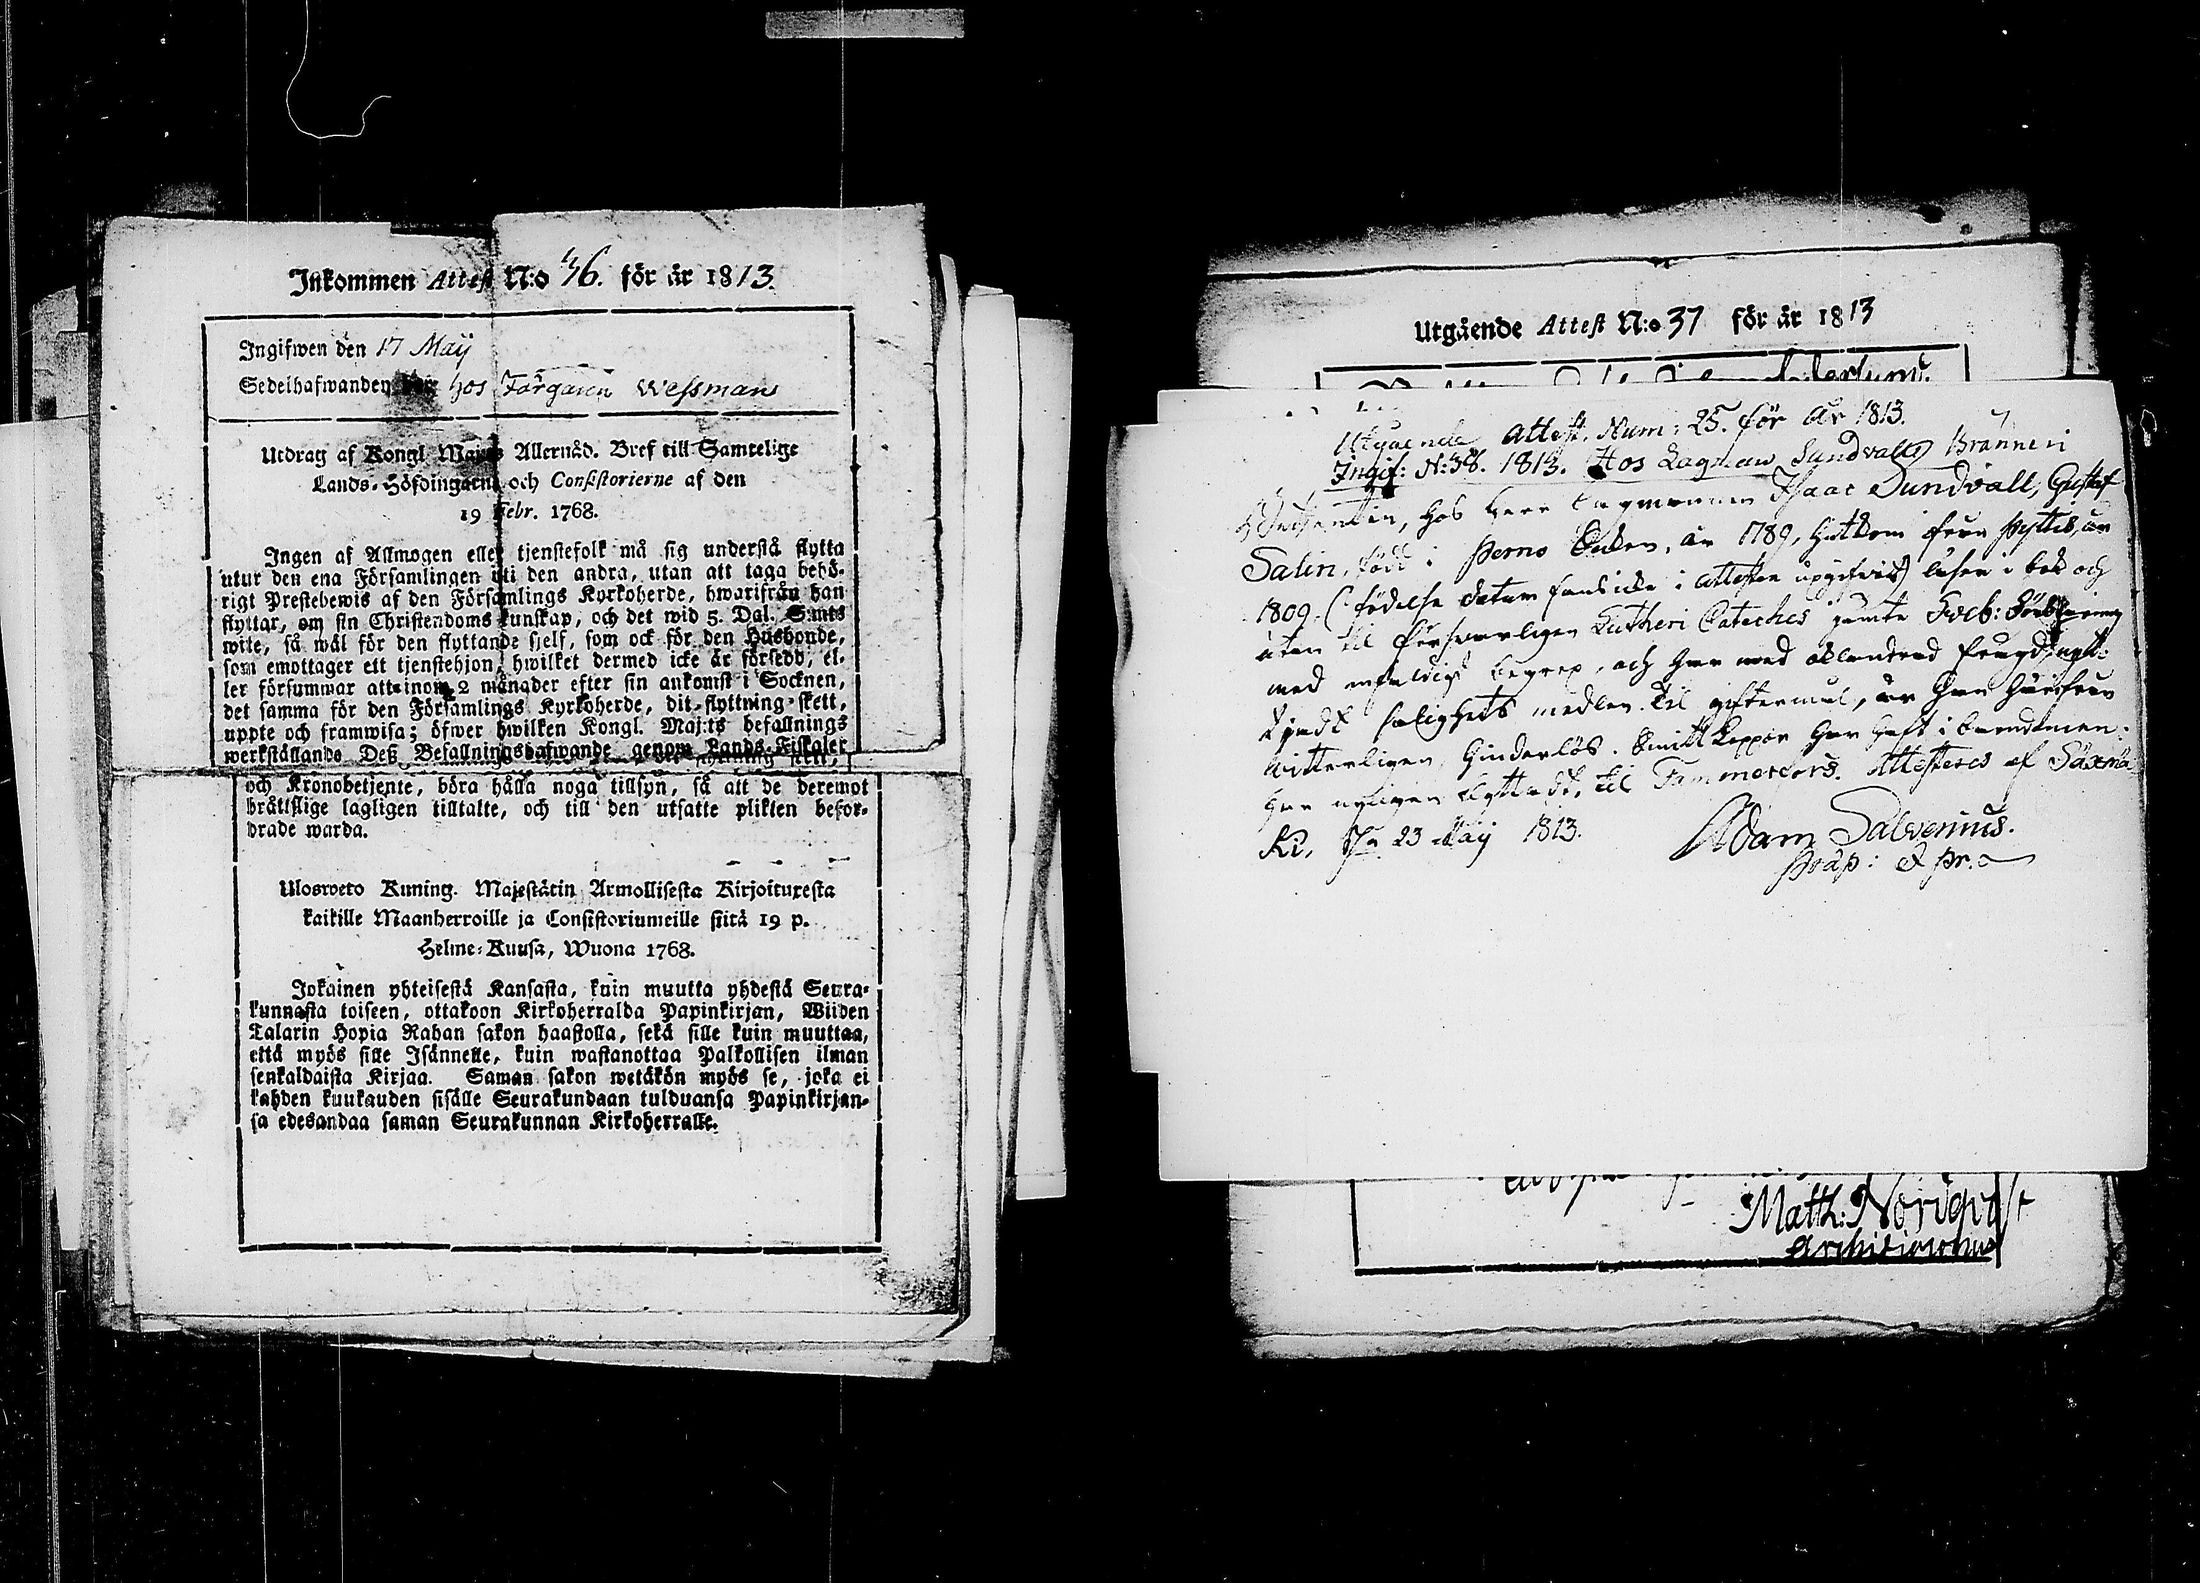 Inkommen Attest N:o 46. för år 1813.
Ingifwen den 17 Maij
Sedelhafwanden hos Färgaren Wessman
Utdrag af Kongl. Maj:ts Allernåd. Bref till Samtelige
Lands-Höfdingarne och Consistorierne af den
19 Febr. 1768.
Ingen af Allmogen eller tjenstefolk må sig understå flytta
utur den ena Församlingen uti den andra, utan att taga behö-
rigt Prestebewis af den Församlings Kyrkoherde, hwarifrån han
flyttar, om sin Christendoms kunskap, och det wid 5. Dal. S:mts
wite, så wäl för den flyttande sjelf, som ock för den Husbonde,
som emottager ett tjenstehjon, hwilket dermed icke är försedd, el-
ler försummar att inom 2 månader efter sin ankomst i Socknen,
det samma för den Församlings Kyrkoherde, dit flyttning skett,
uppte och framwisa; öfwer hwilken Kongl. Maj:ts befallnings
werkställande Deß Befallningshafwande genom Lands-Fiskaler
och Kronobetjente, böra hålla noga tillsyn, så att de deremot
brättslige lagligen tilltalte, och till den utsatte plikten befor-
drade warda.
Ulosweto Kuning. Majestätin Armollisesta Kirjoituxesta
kaikille Maanherroille ja Consistoriumeille siitä 19 p.
Helme-Kuusa, Wuona 1768.
Jokainen yhteisestä Kansasta, kuin muutta yhdestä Seura-
kunnasta toiseen, ottakoon Kirkoherralda Papinkirjan, Wiiden
Talarin Hopia Rahan sakon haastolla, sekä sille kuin muuttaa,
että myös sille Isännelle, kuin wastanottaa Palkollisen ilman
senkaldaista Kirjaa. Saman sakon wetäkön myös se, joka ei
kahden kuukauden sisälle Seurakundaan tulduansa Papinkirjan-
sa edesandaa saman Seurakunnan Kirkoherralle.
Utgående Attest N:o 37 för år 1813
Utgående Attest. Num: 25. för år 1813.
Ingif: N:38. 1813. Hos Lagman Sundvalls Bränneri
hos Herr Lagmannen Isaac Sundvall, Gustaf
Salin, född i Perno Socken, år 1789, hitkom från Pyttis, år
1809. (födelse datum fans icke i attesten upgifvit) läser i bok och
utan til försvarligen Lutheri Cateches jämte
med enfaldigt begrep, och har med
salighets medlen. Til giftermål, är han
vitterligen, hinderlös. Smitt Koppor har haft i barndomen.
har nyligen flyttadt, til Tammerfors. Attesteras af
Ki, d. 23 Maij 1813. Adam Salvenius.
Præp: & Pr.
Matth: Noriqvist